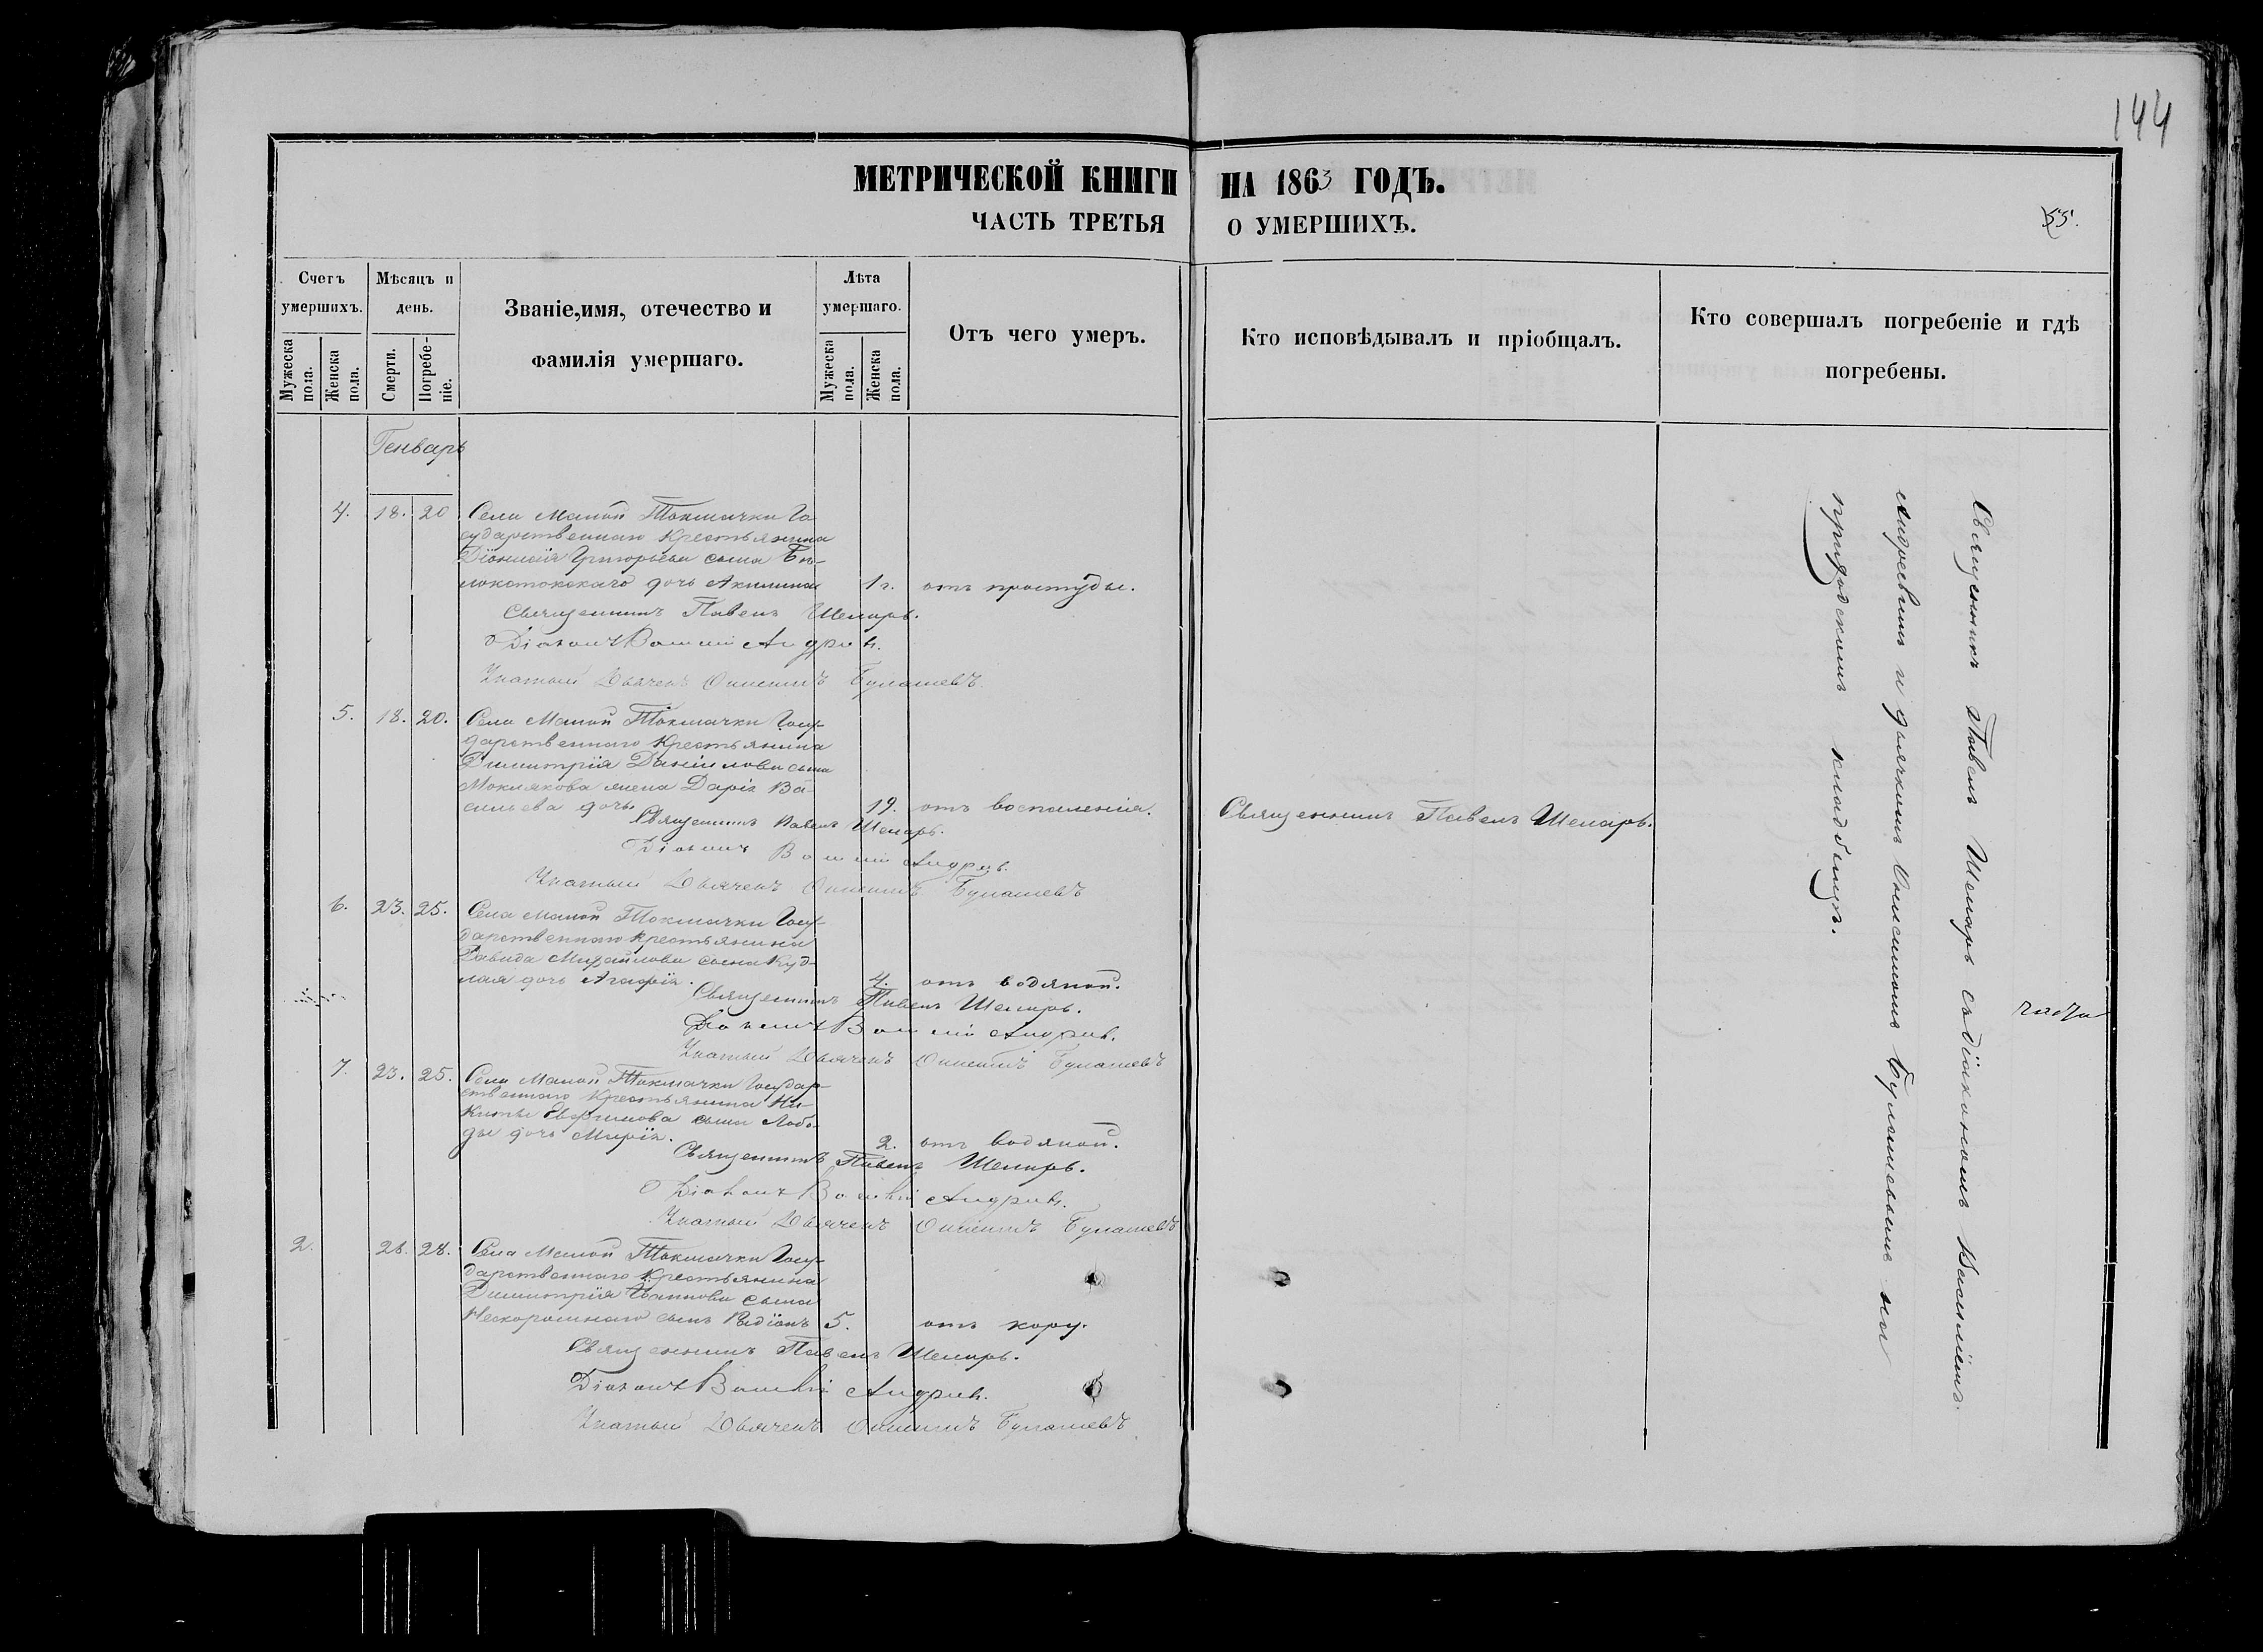 144
МЕТРИЧЕСКОЙ КНИГИ НА 1863 ГОДЪ.
ЧАСТЬ ТРЕТЬЯ О УМЕРШИХЪ.
55.
Счетъ умершихъ.
Мужеска пола.
Женска пола.
Мѣсяцъ и день.
Смерти.
Погребеніе.
Званіе, имя, отечество и
фамилія умершаго.
Лѣта умершаго.
Мужеска пола.
Женска пола.
Отъ чего умеръ.
Кто исповѣдывалъ и пріобщалъ.
Кто совершалъ погребеніе и гдѣ
погребены.
Генварь
4. 18. 20 Села Малой Токмачки Го
сударственнаго Крестьянина
Діонисія Григорьева сына Бѣ-
локотокскаго дочь Акилина 1 г. отъ простуды.
Священникъ Павелъ Шемаръ.
Діаконъ Василій Андрѣев.
Дьячекъ Онисимъ Булашевъ
5. 18. 20. Села Малой Токмачки Госу-
дарственнаго Крестьянина
Димитрія Даніилова сына
Моклякова жена Дарія Ва-
сильева дочь 19. отъ воспаленія. Священникъ Павелъ Шемаръ.
Священникъ Павелъ Шемаръ.
Діаконъ Василій Андрѣев.
Дьячекъ Онисимъ Булашевъ
6. 23. 25. Села Малой Токмачки Госу-
дарственнаго Крестьянина
Давида Михайлова сына Куд-
лая дочь Агафія. 4. отъ водяной.
Священникъ Павелъ Шемаръ.
Діаконъ Василій Андрѣев.
Дьячекъ Онисимъ Булашевъ
7. 23. 25. Села Малой Токмачки Государ-
ственнаго Крестьянина Ни-
киты Ефимова сына Лобо-
ды дочь Марія. 2. отъ водяной.
Священникъ Павелъ Шемаръ.
Діаконъ Василій Андрѣев.
Дьячекъ Онисимъ Булашевъ
2. 26. 28. Села Малой Токмачки Госу-
дарственнаго Крестьянина
Димитрія Іоаннова сына
Нескоромнаго сынъ Родіонъ 5. отъ кору.
Священникъ Павелъ Шемаръ.
Діаконъ Василій Андрѣев.
Дьячекъ Онисимъ Булашевъ
Священникъ Павелъ Шемаръ съ діакономъ Василіемъ
Андреевымъ и дьячкомъ Онисимомъ Булашевымъ на
приходскомъ кладбищѣ.